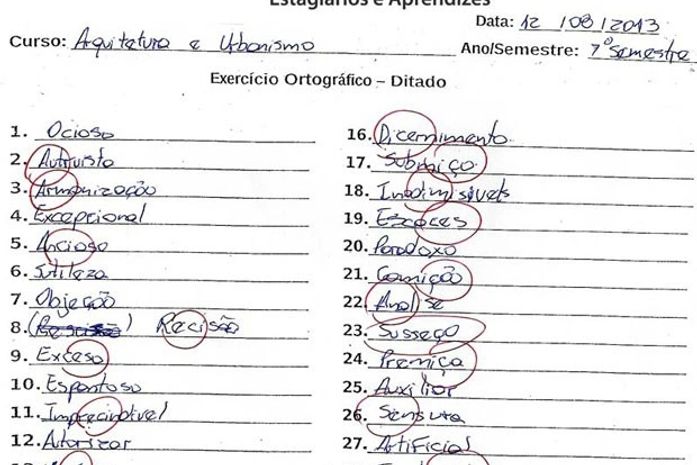 Estagiários e Aprendizes
Data: 12 / 08 / 2013
Curso: Aquitetura e Urbanismo
Ano/Semestre: 7º Semestre
Exercício Ortográfico – Ditado
1. Ocioso
2. Autruista
3. Armonização
4. Excepcional
5. Ancioso
6. Sutileza
7. Objeção
8. Recisão
9. Exceso
10. Espontoso
11. Imprecindivel
12. Autorizar
16. Dicernimento
17. Submiço
18. Inadimisíveis
19. Escaces
20. Paradoxo
21. Comição
22. Analise
23. Sussego
24. Premiça
25. Auxilior
26. Sensura
27. Artificial